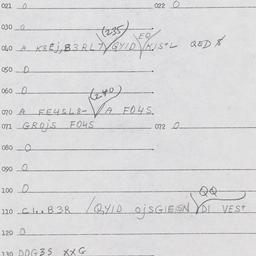 021 0 022 0
030 0
(235) EQ
040 A K8Ej,B3RL7 QYID KJS+L QED 8
050 0
060 0
(240)
070 A FE4SL8- A FO4S.
071 GROjS FO4S 072 0
080 0
090 0
100 0
QQ
110 B3R /QYID OjSGIEGN DI VES+
120 0
130 DDG3S XXG